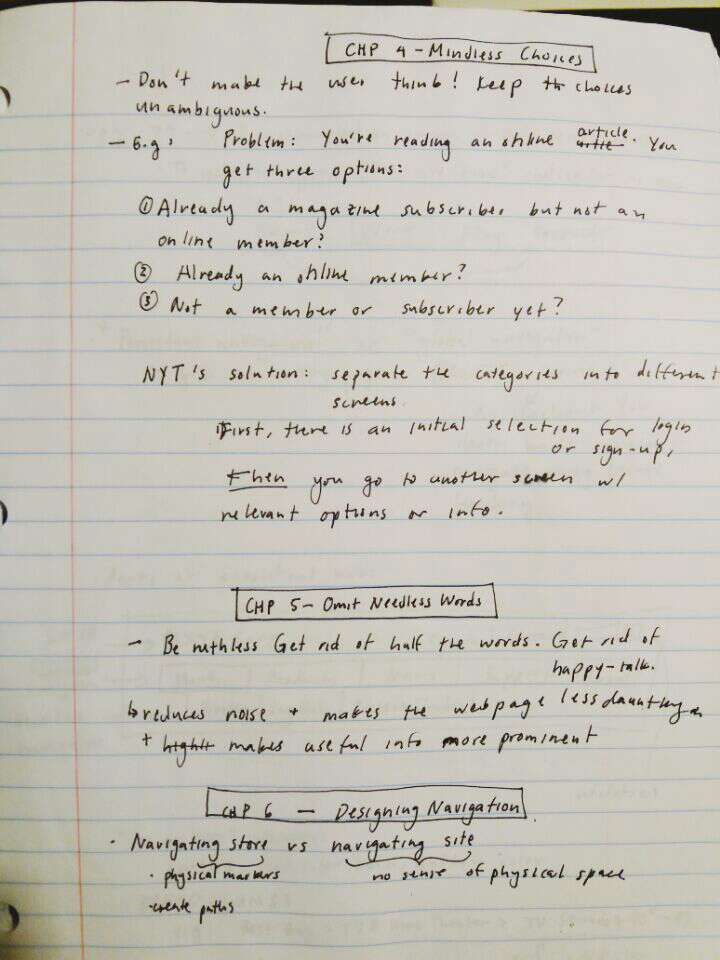 CHP 4 - Mindless Choices
- Don't make the user think! Keep th choices
unambiguous.
- E.g: Problem: You're reading an online article. You
get three options:
① Already a magazine subscriber but not an
online member?
② Already an online member?
③ Not a member or subscriber yet?
NYT's solution: separate the categories into different
screens.
First, there is an initial selection for login
or sign-up,
then you go to another screen w/
relevant options or info.
CHP 5 - Omit Needless Words
- Be ruthless Get rid of half the words. Get rid of
happy-talk.
↳ reduces noise + makes the webpage less daunting
+ makes useful info more prominent
CHP 6 - Designing Navigation
· Navigating store vs navigating site
· physical markers no sense of physical space
· create paths